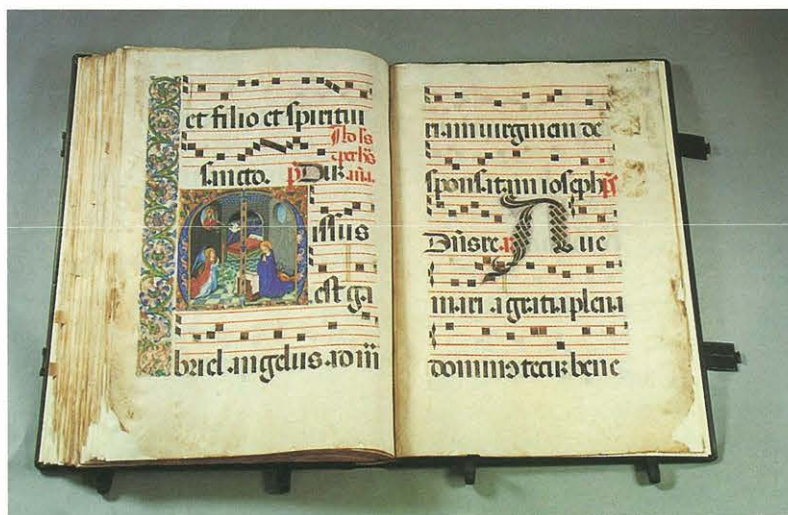 et filio et spiritui
sancto. p̄ Dñs
issus
est ga
briel angelus ad m̄
riam virginem de
sponsatam ioseph ps̄
Dñs re. Aue
maria gratia plena
dominus tecū bene